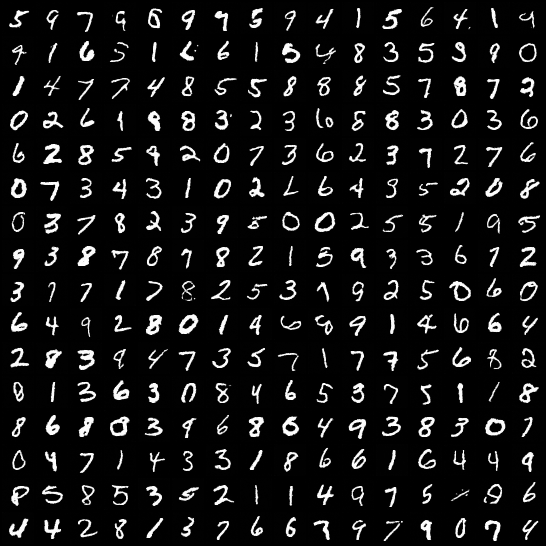 5 9 7 9 6 9 9 5 9 4 1 5 6 4 1 9
9 1 6 5 1 6 6 1 5 4 8 3 5 9 9 0
1 4 7 7 4 8 5 5 8 8 8 5 7 8 7 2
0 2 6 1 9 8 3 2 3 6 8 8 3 0 3 6
6 2 8 5 9 2 0 7 3 6 2 3 9 2 7 6
0 7 3 4 3 1 0 2 6 4 9 5 2 0 8
0 3 7 8 2 3 9 5 0 0 2 5 5 1 9 5
9 3 8 7 8 7 8 2 1 5 9 3 3 6 7 2
3 7 7 1 7 8 2 5 3 7 9 2 5 0 6 0
6 4 9 2 8 0 1 4 6 8 9 1 4 6 6 4
2 8 3 9 4 7 3 5 7 1 7 7 5 6 8 2
8 1 3 6 3 0 8 4 6 5 3 7 5 1 1 8
8 6 8 0 3 9 6 8 0 4 9 3 8 3 0 7
0 9 7 1 4 3 3 1 8 6 6 1 6 4 4 9
8 5 8 5 3 5 2 1 1 4 9 7 5 8 6
4 4 2 8 1 3 7 6 6 7 9 7 9 0 7 4